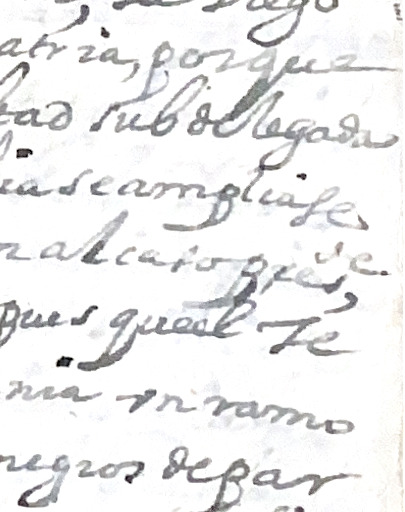 atria, porque
tad subdelegada
ia se ampliase
n al caso pres,te
pues que el Te
nia un ramo
negros de par